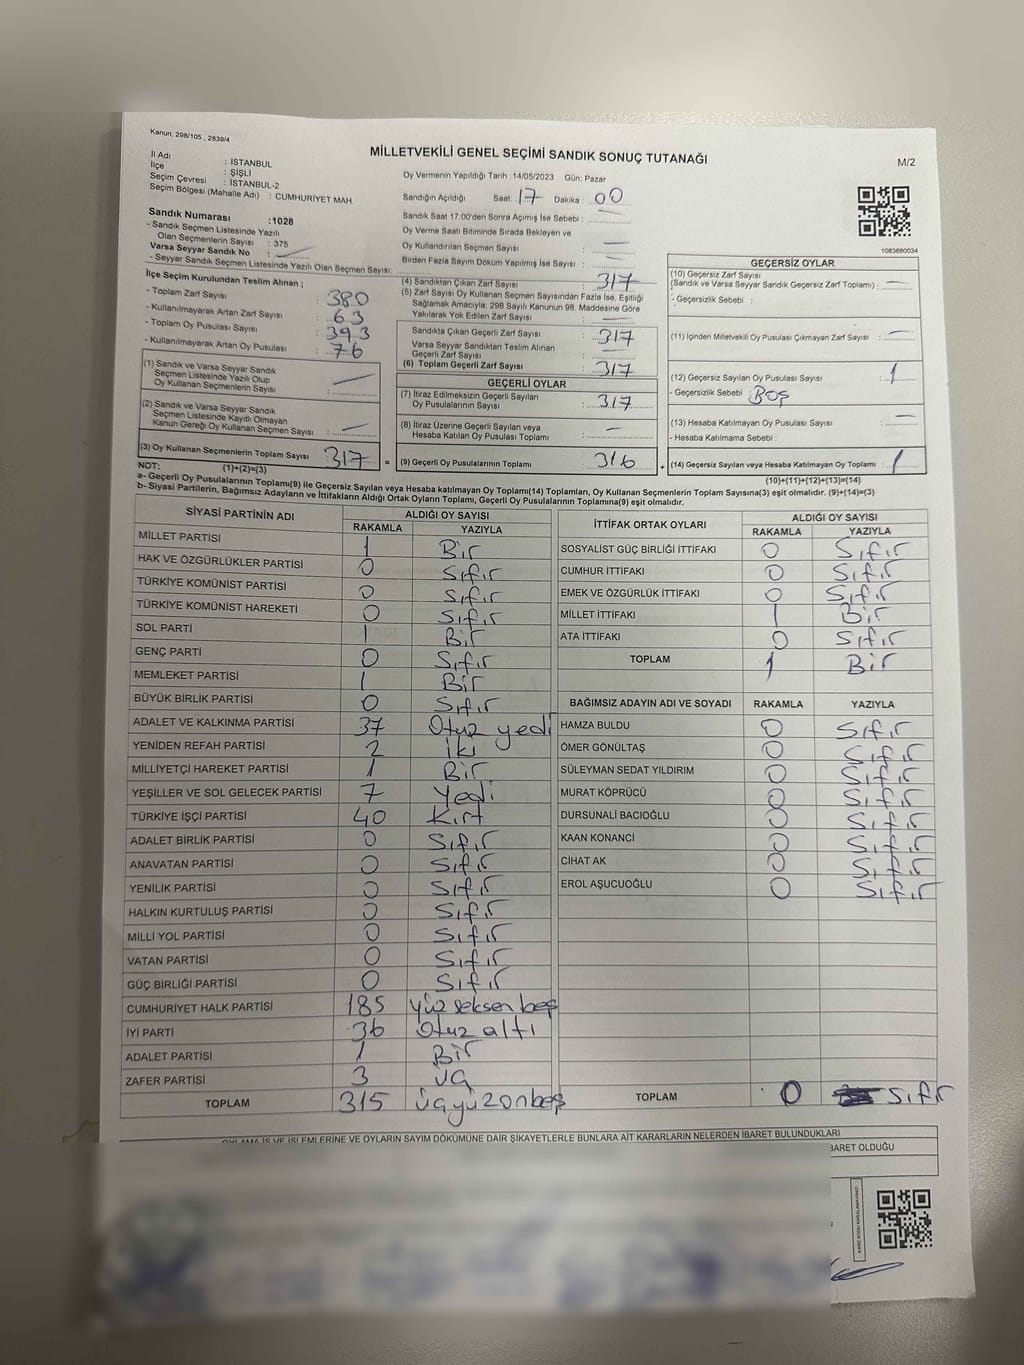 Kanun; 298/105 , 2839/4
MİLLETVEKİLİ GENEL SEÇİMİ SANDIK SONUÇ TUTANAĞI
M/2
İl Adı : İSTANBUL
İlçe : ŞİŞLİ
Seçim Çevresi : İSTANBUL-2
Seçim Bölgesi (Mahalle Adı) : CUMHURİYET MAH.
Sandık Numarası :1028
- Sandık Seçmen Listesinde Yazılı
Olan Seçmenlerin Sayısı : 375
Varsa Seyyar Sandık No :
- Seyyar Sandık Seçmen Listesinde Yazılı Olan Seçmen Sayısı:
Oy Vermenin Yapıldığı Tarih :14/05/2023 Gün: Pazar
Sandığın Açıldığı Saat: 17 Dakika : 00
Sandık Saat 17:00'den Sonra Açılmış İse Sebebi :
Oy Verme Saati Bitiminde Sırada Bekleyen ve
Oy Kullandırılan Seçmen Sayısı :
Birden Fazla Sayım Döküm Yapılmış İse Sayısı :
1083680034
İlçe Seçim Kurulundan Teslim Alınan ;
- Toplam Zarf Sayısı : 380
- Kullanılmayarak Artan Zarf Sayısı : 63
- Toplam Oy Pusulası Sayısı : 393
- Kullanılmayarak Artan Oy Pusulası : 76
(1) Sandık ve Varsa Seyyar Sandık
Seçmen Listesinde Yazılı Olup
Oy Kullanan Seçmenlerin Sayısı :
(2) Sandık ve Varsa Seyyar Sandık
Seçmen Listesinde Kayıtlı Olmayan
Kanun Gereği Oy Kullanan Seçmen Sayısı :
(3) Oy Kullanan Seçmenlerin Toplam Sayısı : 317 =
(4) Sandıktan Çıkan Zarf Sayısı : 317
(5) Zarf Sayısı Oy Kullanan Seçmen Sayısından Fazla İse, Eşitliği
Sağlamak Amacıyla; 298 Sayılı Kanunun 98. Maddesine Göre
Yakılarak Yok Edilen Zarf Sayısı :
Sandıkta Çıkan Geçerli Zarf Sayısı : 317
Varsa Seyyar Sandıktan Teslim Alınan
Geçerli Zarf Sayısı :
(6) Toplam Geçerli Zarf Sayısı : 317
GEÇERLİ OYLAR
(7) İtiraz Edilmeksizin Geçerli Sayılan
Oy Pusulalarının Sayısı : 317
(8) İtiraz Üzerine Geçerli Sayılan veya
Hesaba Katılan Oy Pusulası Toplamı :
(9) Geçerli Oy Pusulalarının Toplamı : 316 +
GEÇERSİZ OYLAR
(10) Geçersiz Zarf Sayısı
(Sandık ve Varsa Seyyar Sandık Geçersiz Zarf Toplamı) :
- Geçersizlik Sebebi :
(11) İçinden Milletvekili Oy Pusulası Çıkmayan Zarf Sayısı :
(12) Geçersiz Sayılan Oy Pusulası Sayısı : 1
- Geçersizlik Sebebi : Boş
(13) Hesaba Katılmayan Oy Pusulası Sayısı :
- Hesaba Katılmama Sebebi :
(14) Geçersiz Sayılan veya Hesaba Katılmayan Oy Toplamı : 1
NOT: (1)+(2)=(3)
(10)+(11)+(12)+(13)=(14)
a- Geçerli Oy Pusulalarının Toplamı(9) ile Geçersiz Sayılan veya Hesaba katılmayan Oy Toplamı(14) Toplamları, Oy Kullanan Seçmenlerin Toplam Sayısına(3) eşit olmalıdır. (9)+(14)=(3)
b- Siyasi Partilerin, Bağımsız Adayların ve İttifakların Aldığı Ortak Oyların Toplamı, Geçerli Oy Pusulalarının Toplamına(9) eşit olmalıdır.
SİYASİ PARTİNİN ADI ALDIĞI OY SAYISI
RAKAMLA YAZIYLA
MİLLET PARTİSİ 1 Bir
HAK VE ÖZGÜRLÜKLER PARTİSİ 0 Sıfır
TÜRKİYE KOMÜNİST PARTİSİ 0 Sıfır
TÜRKİYE KOMÜNİST HAREKETİ 0 Sıfır
SOL PARTİ 1 Bir
GENÇ PARTİ 0 Sıfır
MEMLEKET PARTİSİ 1 Bir
BÜYÜK BİRLİK PARTİSİ 0 Sıfır
ADALET VE KALKINMA PARTİSİ 37 Otuz yedi
YENİDEN REFAH PARTİSİ 2 İki
MİLLİYETÇİ HAREKET PARTİSİ 1 Bir
YEŞİLLER VE SOL GELECEK PARTİSİ 7 Yedi
TÜRKİYE İŞÇİ PARTİSİ 40 Kırk
ADALET BİRLİK PARTİSİ 0 Sıfır
ANAVATAN PARTİSİ 0 Sıfır
YENİLİK PARTİSİ 0 Sıfır
HALKIN KURTULUŞ PARTİSİ 0 Sıfır
MİLLİ YOL PARTİSİ 0 Sıfır
VATAN PARTİSİ 0 Sıfır
GÜÇ BİRLİĞİ PARTİSİ 0 Sıfır
CUMHURİYET HALK PARTİSİ 185 Yüz seksen beş
İYİ PARTİ 36 Otuz altı
ADALET PARTİSİ 1 Bir
ZAFER PARTİSİ 3 üç
TOPLAM 315 üçyüzonbeş
İTTİFAK ORTAK OYLARI ALDIĞI OY SAYISI
RAKAMLA YAZIYLA
SOSYALİST GÜÇ BİRLİĞİ İTTİFAKI 0 Sıfır
CUMHUR İTTİFAKI 0 Sıfır
EMEK VE ÖZGÜRLÜK İTTİFAKI 0 Sıfır
MİLLET İTTİFAKI 1 Bir
ATA İTTİFAKI 0 Sıfır
TOPLAM 1 Bir
BAĞIMSIZ ADAYIN ADI VE SOYADI RAKAMLA YAZIYLA
HAMZA BULDU 0 Sıfır
ÖMER GÖNÜLTAŞ 0 Sıfır
SÜLEYMAN SEDAT YILDIRIM 0 Sıfır
MURAT KÖPRÜCÜ 0 Sıfır
DURSUNALİ BACIOĞLU 0 Sıfır
KAAN KONANCİ 0 Sıfır
CİHAT AK 0 Sıfır
EROL AŞUCUOĞLU 0 Sıfır
TOPLAM 0 Sıfır
OYLAMA İŞ VE İŞLEMLERİNE VE OYLARIN SAYIM DÖKÜMÜNE DAİR ŞİKAYETLERLE BUNLARA AİT KARARLARIN NELERDEN İBARET BULUNDUKLARI
BARET OLDUĞU